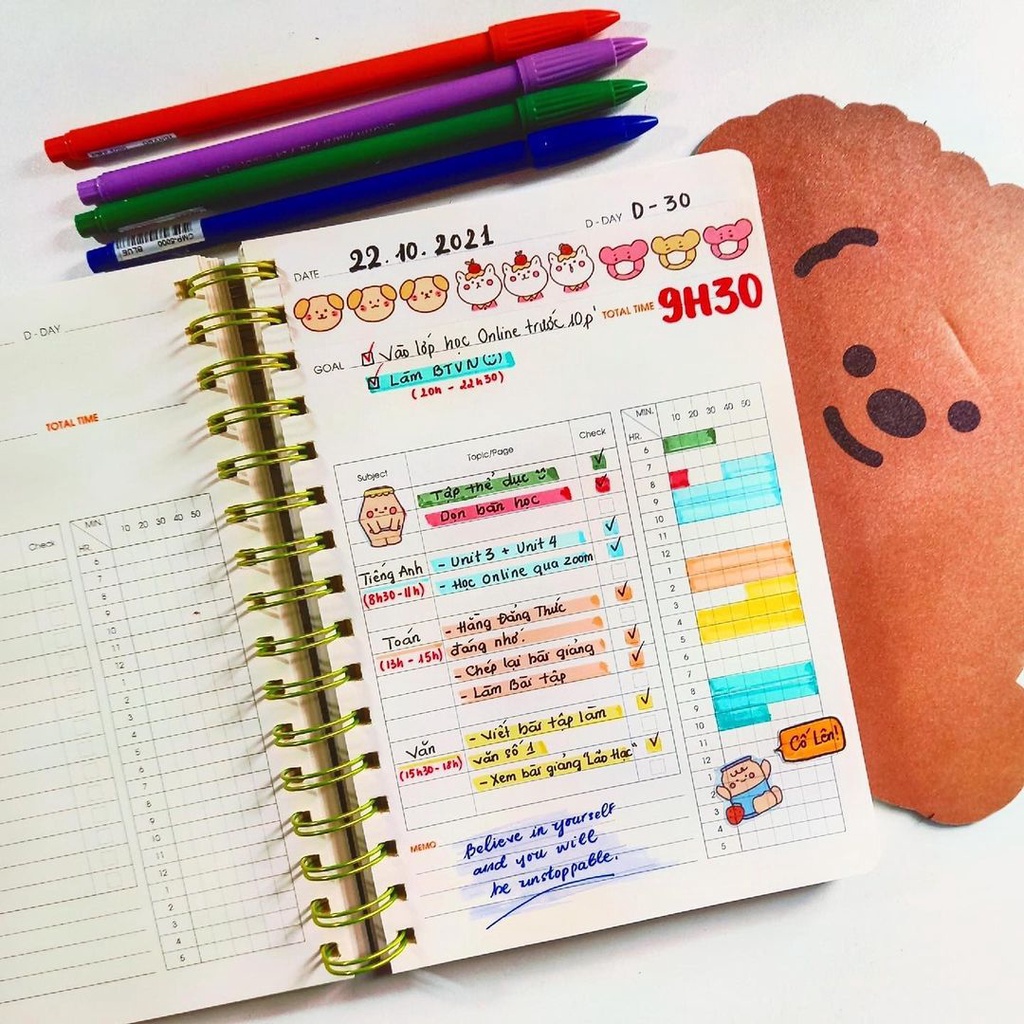 CMP-5000
BLUE
D-DAY
TOTAL TIME
Check
MIN.
HR.
10 20 30 40 50
6
7
8
9
10
11
12
1
2
3
4
5
6
7
8
9
10
11
12
1
2
3
4
5
DATE 22.10.2021 D-DAY D-30
TOTAL TIME 9H30
GOAL Vào lớp học Online trước 10p'
Làm BTVN
(20h - 22h30)
Subject Topic/Page Check
Tập thể dục
Dọn bàn học
Tiếng Anh - Unit 3 + Unit 4
(8h30-11h) - Học Online qua zoom
Toán - Hằng Đẳng Thức
(13h - 15h) đáng nhớ.
- Chép lại bài giảng
- Làm Bài tập
Văn - Viết bài tập làm
(15h30-18h) văn số 1
- Xem bài giảng "Lão Hạc"
MIN. 10 20 30 40 50
HR.
6
7
8
9
10
11
12
1
2
3
4
5
6
7
8
9
10
11
12
1
2
3
4
5
Cố Lên!
MEMO Believe in yourself
and you will
be unstoppable.